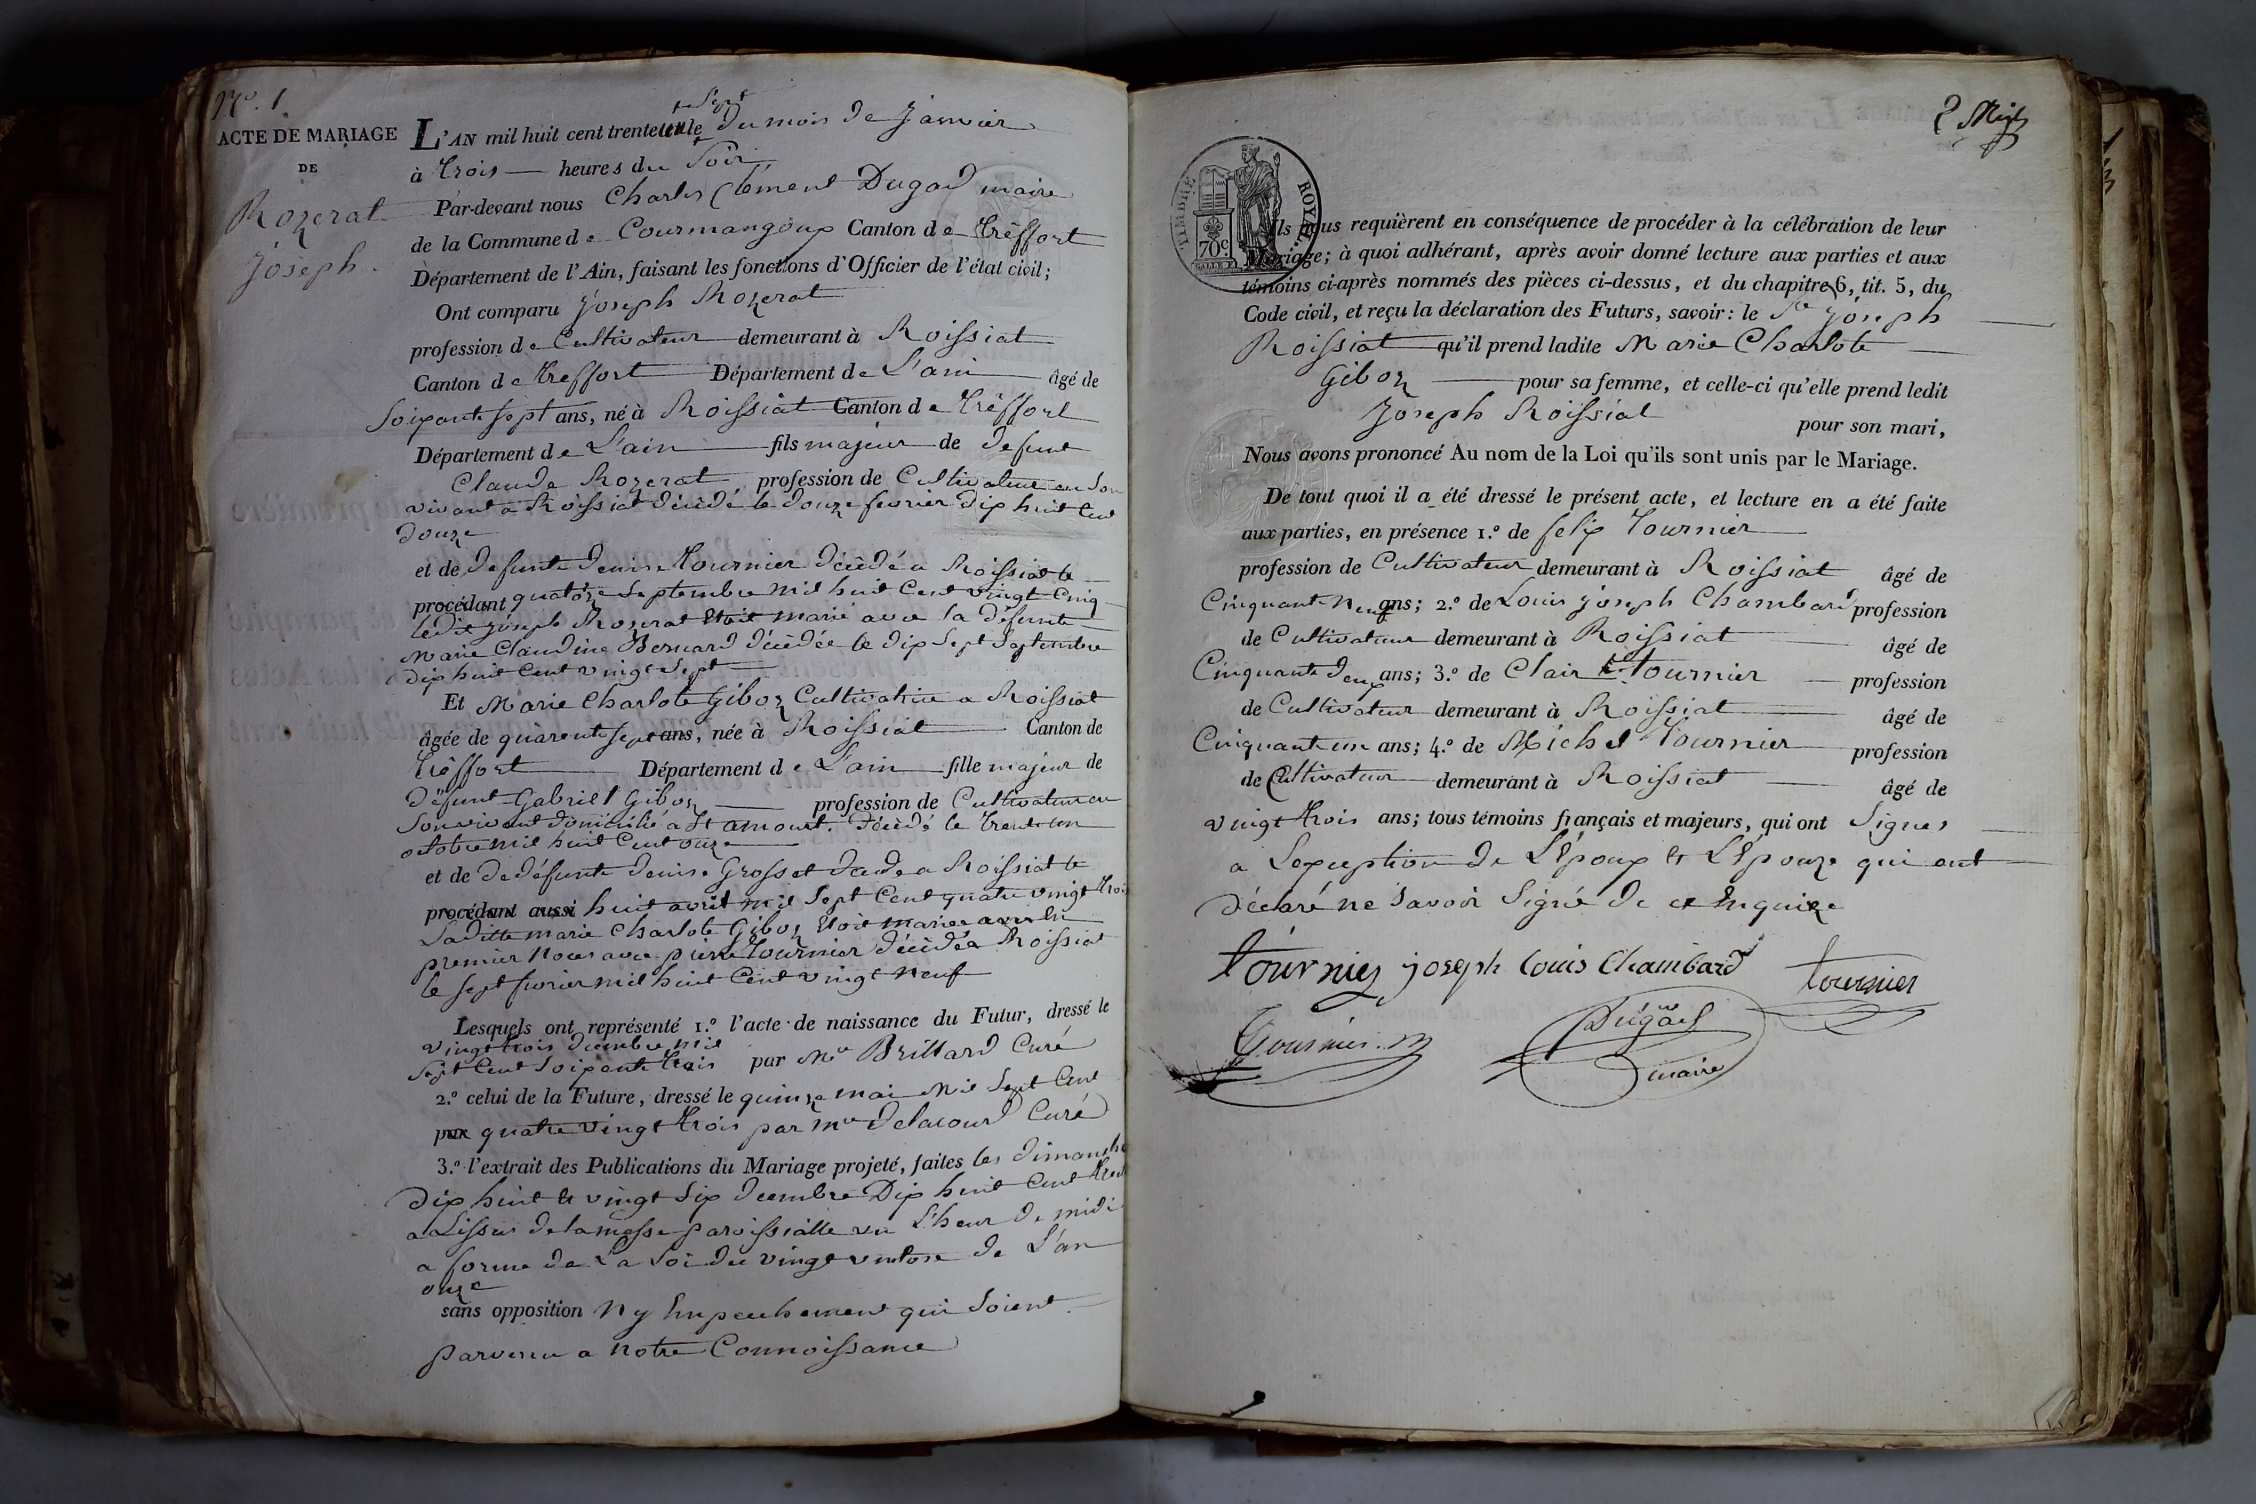 N.o 1
ACTE DE MARIAGE
DE
Rozerat
Joseph.
L'AN mil huit cent trente un le sept du mois de janvier
à trois heures du Soir
Par-devant nous Charles Clément Dugad maire
de la Commune de Courmangoux Canton de Tréffort
Département de l'Ain, faisant les fonctions d'Officier de l'état civil;
Ont comparu Joseph Rozerat
profession de Cultivateur demeurant à Roissiat
Canton de treffort Département de L'ain âgé de
Soixante sept ans, né à Roissiat Canton de Tréffort
Département de L'ain fils majeur de defunt
Claude Rozerat profession de Cultivateur en Son
vivant a Roissiat décédé le douze fevrier dix huit Cent
douze
et de defunte denise Tournier décédé a Roissiat le
procédant quatorze Septembre mil huit Cent vingt Cinq
ledit Joseph Rozerat étoit marié avec la défunte
Marie Claudine Bernard décédée le dix Sept Septembre
dix huit Cent vingt Sept
Et Marie Charlote Giboz Cultivatrice a Roissiat
âgée de quarente sept ans, née à Roissiat Canton de
Tréffort Département de L'ain fille majeur de
défunt Gabriel Giboz profession de Cultivateur en
Son vivant domicilié a St amourt. décédé le trente un
octobre mil huit Cent onze
et de de défunte denise Grosset décédé a Roissiat le
procédant aussi huit avril mil Sept Cent quatre vingt trois
Laditte marie Charlote Giboz étoit mariée avec en
premier Noces avec pierre Tournier décédé a Roissiat
le sept fevrier mil huit Cent vingt neuf
Lesquels ont représenté 1.o l'acte de naissance du Futur, dressé le
vingt trois décembre mil
Sept Cent Soixante trois par Mre Brillard Curé
2.o celui de la Future, dressé le quinze mai Mil Sept Cent
quatre vingt trois par mre Delacourd Curé
3.o l'extrait des Publications du Mariage projeté, faites les dimanche
dix huit et vingt Six decembre Dix huit Cent trente
a Lissus de la messe paroissialle vu L'heur de midi
a forme de La Loi du vingt ventose de L'an
onze
sans opposition ny Empechement qui Soient
parvenu a notre Connoissance
2 Mge
TIMBRE ROYAL
70c
Ils nous requièrent en conséquence de procéder à la célébration de leur
Mariage; à quoi adhérant, après avoir donné lecture aux parties et aux
témoins ci-après nommés des pièces ci-dessus, et du chapitre 6, tit. 5, du
Code civil, et reçu la déclaration des Futurs, savoir: le Sr Joseph
Roissiat qu'il prend ladite Marie Charlote
Giboz pour sa femme, et celle-ci qu'elle prend ledit
Joseph Roissiat pour son mari,
Nous avons prononcé Au nom de la Loi qu'ils sont unis par le Mariage.
De tout quoi il a été dressé le présent acte, et lecture en a été faite
aux parties, en présence 1.o de felix Tournier
profession de Cultivateur demeurant à Roissiat âgé de
Cinquant Neuf ans; 2.o de Louis joseph Chambard profession
de Cultivateur demeurant à Roissiat âgé de
Cinquante Deux ans; 3.o de Clair Tournier profession
de Cultivateur demeurant à Roissiat âgé de
Cinquant un ans; 4.o de Michel Tournier profession
de Cultivateur demeurant à Roissiat âgé de
vingt trois ans; tous témoins français et majeurs, qui ont Signés
a Lexception de L'Epoux et L'Epouze qui ont
déclaré ne Savoir Signé de ce Enquize
tournier joseph louis Chambard tournier
Tournier m Dugad
maire